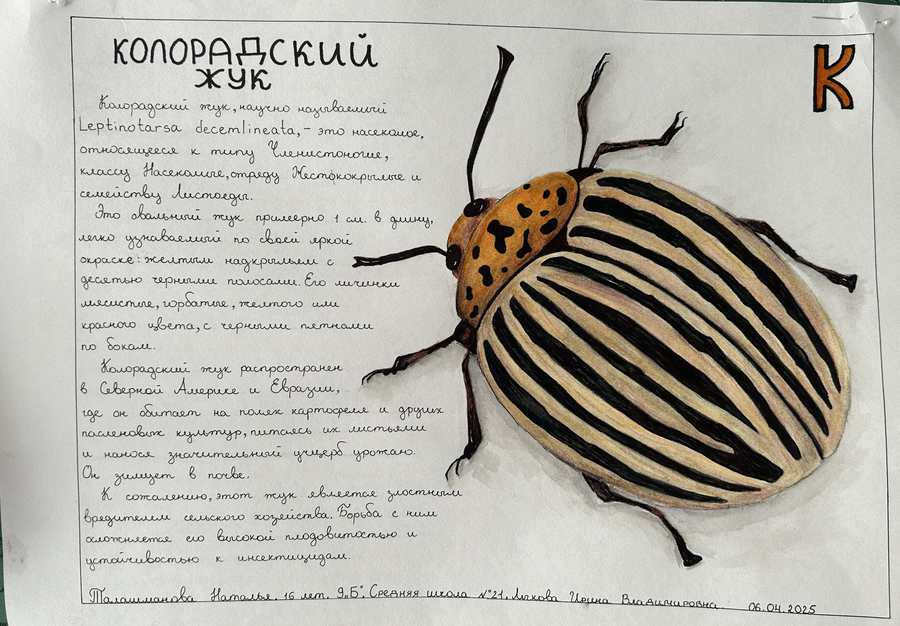 КОЛОРАДСКИЙ
ЖУК
К
Колорадский жук, научно называемый
Leptinotarsa decemlineata, - это насекомое,
относящееся к типу Членистоногие,
классу Насекомые, отряду Жесткокрылые и
семейству Листоеды.
Это овальный жук примерно 1 см. в длину,
легко узнаваемый по своей яркой
окраске: желтым надкрыльем с
десятью черными полосами. Его личинки
мясистые, горбатые, желтого или
красного цвета, с черными пятнами
по бокам.
Колорадский жук распространен
в Северной Америке и Евразии,
где он обитает на полях картофеля и других
пасленовых культур, питаясь их листьями
и нанося значительный ущерб урожаю.
Он зимует в почве.
К сожалению, этот жук является злостным
вредителем сельского хозяйства. Борьба с ним
осложняется его высокой плодовитостью и
устойчивостью к инсектицидам.
Талашманова Наталья. 16 лет. 9„Б". Средняя школа №21. Лыкова Ирина Владимировна. 06.04.2025